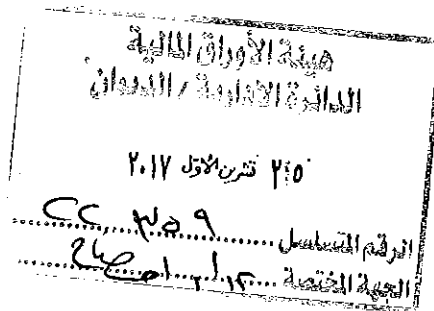 هيئة الأوراق المالية
الدائرة الادارية / الديوان
٢٥ تشرين الاول ٢٠١٧
الرقم المتسلسل
الجهة المختصة